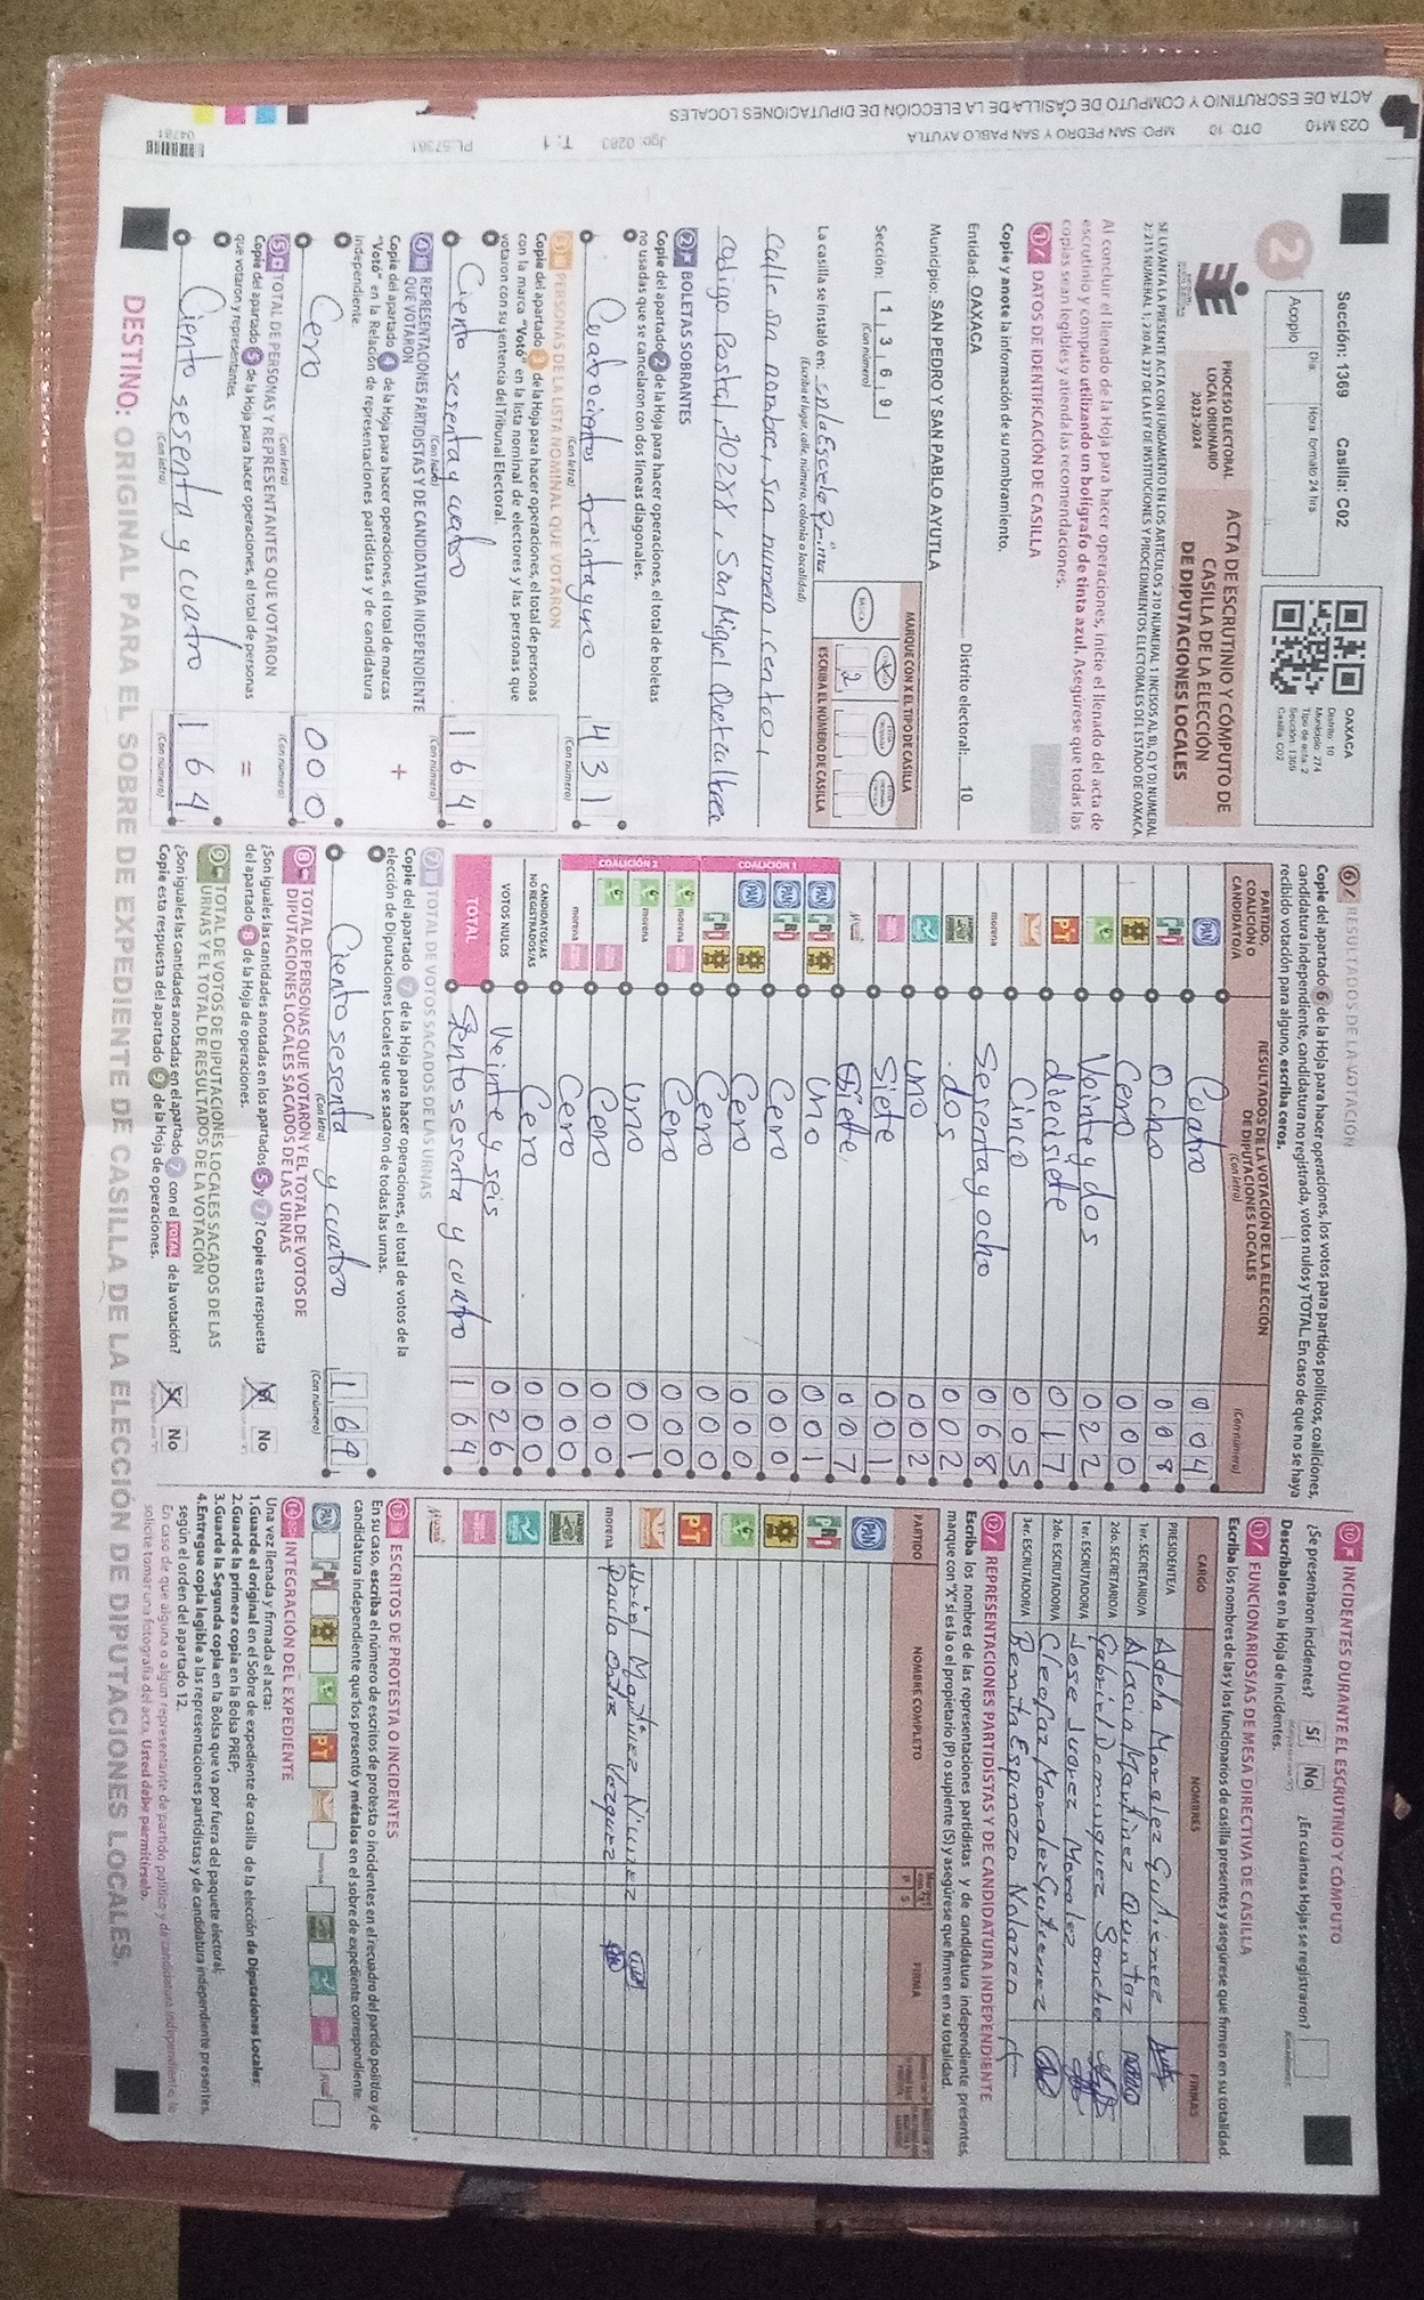 ACTA DE ESCRUTINIO Y CÓMPUTO DE CASILLA DE LA ELECCIÓN DE DIPUTACIONES LOCALES
O23 M10 DTO: 10 MPO: SAN PEDRO Y SAN PABLO AYUTLA
Jgo: 0203 T: 1
04781
Sección: 1369 Casilla: C02
2
Acopio
Día:
Hora formato 24 hrs
OAXACA
Distrito: 10
Municipio: 274
Tipo de acta: 2
Sección: 1369
Casilla: C02
PROCESO ELECTORAL
LOCAL ORDINARIO
2023-2024
ACTA DE ESCRUTINIO Y CÓMPUTO DE
CASILLA DE LA ELECCIÓN
DE DIPUTACIONES LOCALES
SE LEVANTA LA PRESENTE ACTA CON FUNDAMENTO EN LOS ARTÍCULOS 210 NUMERAL 1 INCISOS A), B), C) Y D) NUMERAL
2; 215 NUMERAL 1; 230 AL 237 DE LA LEY DE INSTITUCIONES Y PROCEDIMIENTOS ELECTORALES DEL ESTADO DE OAXACA.
Al concluir el llenado de la Hoja para hacer operaciones, inicie el llenado del acta de
escrutinio y cómputo utilizando un bolígrafo de tinta azul. Asegúrese que todas las
copias sean legibles y atienda las recomendaciones.
1 DATOS DE IDENTIFICACIÓN DE CASILLA
Copie y anote la información de su nombramiento.
Entidad: OAXACA Distrito electoral: 10
Municipio: SAN PEDRO Y SAN PABLO AYUTLA
Sección: 1 3 6 9
(Con número)
MARQUE CON X EL TIPO DE CASILLA
BÁSICA
2
ESCRIBA EL NÚMERO DE CASILLA
La casilla se instaló en: en la Escuela Primaria
(Escriba el lugar, calle, número, colonia o localidad)
Calle sin nombre, sin numero, centro,
codigo Postal, 70288, San Miguel
2 BOLETAS SOBRANTES
Copie del apartado 2 de la Hoja para hacer operaciones, el total de boletas
no usadas que se cancelaron con dos líneas diagonales.
Cuatrocientos treinta y uno 431
(Con letra) (Con número)
3 PERSONAS DE LA LISTA NOMINAL QUE VOTARON
Copie del apartado 3 de la Hoja para hacer operaciones, el total de personas
con la marca "Votó" en la lista nominal de electores y las personas que
votaron con su sentencia del Tribunal Electoral.
Ciento sesenta y cuatro 164
(Con letra) (Con número)
4 REPRESENTACIONES PARTIDISTAS Y DE CANDIDATURA INDEPENDIENTE
QUE VOTARON
Copie del apartado 4 de la Hoja para hacer operaciones, el total de marcas
"Votó" en la Relación de representaciones partidistas y de candidatura
independiente.
+
Cero 000
(Con letra) (Con número)
5 TOTAL DE PERSONAS Y REPRESENTANTES QUE VOTARON
Copie del apartado 5 de la Hoja para hacer operaciones, el total de personas
que votaron y representantes.
=
Ciento sesenta y cuatro 164
(Con letra) (Con número)
6 RESULTADOS DE LA VOTACIÓN
Copie del apartado 6 de la Hoja para hacer operaciones, los votos para partidos políticos, coaliciones,
candidatura independiente, candidatura no registrada, votos nulos y TOTAL. En caso de que no se haya
recibido votación para alguno, escriba ceros.
PARTIDO,
COALICIÓN O
CANDIDATO/A
RESULTADOS DE LA VOTACIÓN DE LA ELECCIÓN
DE DIPUTACIONES LOCALES
(Con letra) (Con número)
PAN Cuatro 004
PRI Ocho 008
Cero 000
Veinte y dos 022
PT diecisiete 017
Cinco 005
morena Sesenta y ocho 068
dos 002
uno 002
Siete 001
Siete 007
COALICIÓN 1
PAN PRI Uno 001
PAN PRI Cero 000
PAN Cero 000
PRI Cero 000
COALICIÓN 2
morena Cero 000
morena Uno 001
Cero 000
morena Cero 000
CANDIDATOS/AS
NO REGISTRADOS/AS Cero 000
VOTOS NULOS Veinte y seis 026
TOTAL Siento sesenta y cuatro 164
7 TOTAL DE VOTOS SACADOS DE LAS URNAS
Copie del apartado 7 de la Hoja para hacer operaciones, el total de votos de la
elección de Diputaciones Locales que se sacaron de todas las urnas.
Ciento sesenta y cuatro 164
(Con letra) (Con número)
8 TOTAL DE PERSONAS QUE VOTARON Y EL TOTAL DE VOTOS DE
DIPUTACIONES LOCALES SACADOS DE LAS URNAS
¿Son iguales las cantidades anotadas en los apartados 5 y 7? Copie esta respuesta
del apartado 8 de la Hoja de operaciones.
Sí No
9 TOTAL DE VOTOS DE DIPUTACIONES LOCALES SACADOS DE LAS
URNAS Y EL TOTAL DE RESULTADOS DE LA VOTACIÓN
¿Son iguales las cantidades anotadas en el apartado 7 con el TOTAL de la votación?
Copie esta respuesta del apartado 9 de la Hoja de operaciones.
Sí No
10 INCIDENTES DURANTE EL ESCRUTINIO Y CÓMPUTO
¿Se presentaron incidentes? Sí No ¿En cuántas Hojas se registraron?
Descríbalos en la Hoja de incidentes.
11 FUNCIONARIOS/AS DE MESA DIRECTIVA DE CASILLA
Escriba los nombres de las y los funcionarios de casilla presentes y asegúrese que firmen en su totalidad.
CARGO NOMBRES FIRMAS
PRESIDENTE/A Adela Moralez Gutierrez
1er. SECRETARIO/A Alacia Martinez Quintaz
2do. SECRETARIO/A Gabriel Dominguez Sanchez
1er. ESCRUTADOR/A Jose Juarez Moralez
2do. ESCRUTADOR/A Cleofaz Moralez Gutierrez
3er. ESCRUTADOR/A Benita Espinozo Nolazco
12 REPRESENTACIONES PARTIDISTAS Y DE CANDIDATURA INDEPENDIENTE
Escriba los nombres de las representaciones partidistas y de candidatura independiente presentes,
marque con "X" si es la o el propietario (P) o suplente (S) y asegúrese que firmen en su totalidad.
PARTIDO NOMBRE COMPLETO P S FIRMA
PAN
PRI
PT
Uriel Martinez Nunez
morena Paula Ortiz Vazquez
13 ESCRITOS DE PROTESTA O INCIDENTES
En su caso, escriba el número de escritos de protesta o incidentes en el recuadro del partido político y de
candidatura independiente que los presentó y métalos en el sobre de expediente correspondiente.
PAN PRI PT morena
14 INTEGRACIÓN DEL EXPEDIENTE
Una vez llenada y firmada el acta:
1.Guarde el original en el Sobre de expediente de casilla de la elección de Diputaciones Locales;
2.Guarde la primera copia en la Bolsa PREP;
3.Guarda la Segunda copia en la Bolsa que va por fuera del paquete electoral;
4.Entregue copia legible a las representaciones partidistas y de candidatura independiente presentes,
según el orden del apartado 12.
En caso de que alguna o algún representante de partido político y de candidatura independiente, le
solicite tomar una fotografía del acta, Usted debe permitírselo.
DESTINO: ORIGINAL PARA EL SOBRE DE EXPEDIENTE DE CASILLA DE LA ELECCIÓN DE DIPUTACIONES LOCALES.